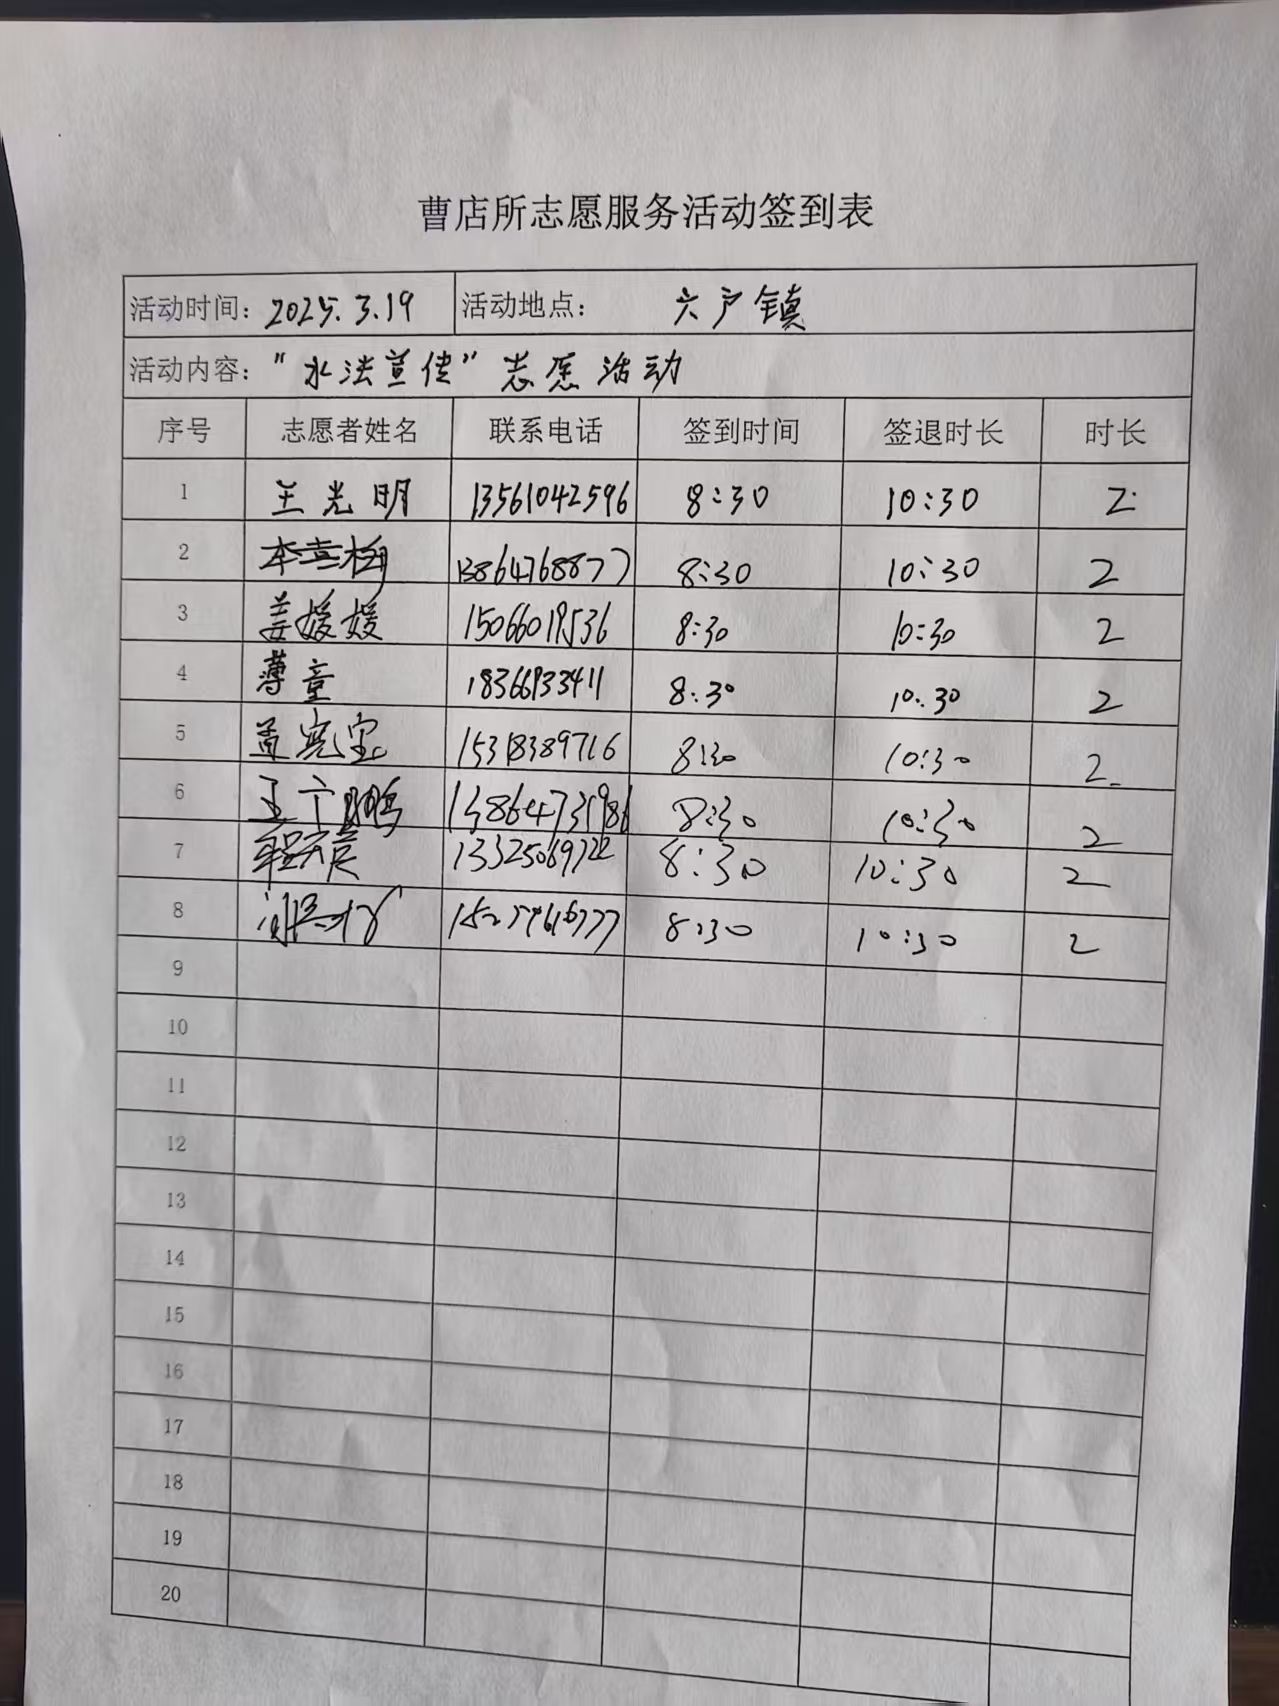 曹店所志愿服务活动签到表
活动时间：2025.3.19 活动地点：六户镇
活动内容："水法宣传"志愿活动
序号 志愿者姓名 联系电话 签到时间 签退时长 时长
1 王光明 13561042596 8:30 10:30 2
2 13864768877 8:30 10:30 2
3 姜媛媛 15066019536 8:30 10:30 2
4 薄童 18366933411 8:30 10:30 2
5 孟宪宝 15318389716 8:30 10:30 2
6 8:30 10:30 2
7 8:30 10:30 2
8 8:30 10:30 2
9
10
11
12
13
14
15
16
17
18
19
20